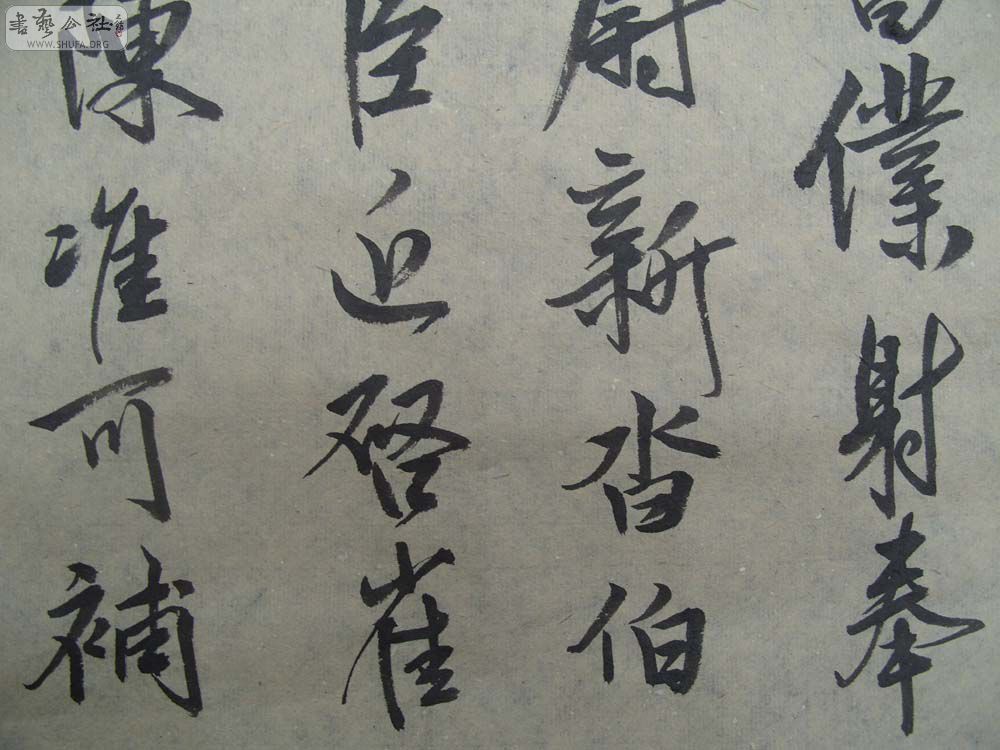 僕射奉
尉新沓伯
臣近啓崔
陳准可補
書藝公社
WWW.SHUFA.ORG